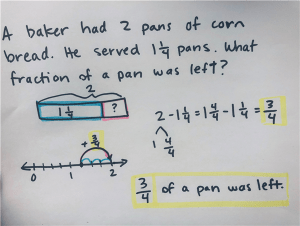 A baker had 2 pans of corn
bread. He served 1 1/4 pans. What
fraction of a pan was left?
2
1 1/4 ?
+ 3/4
0 1 2
2 - 1 1/4 = 1 4/4 - 1 1/4 = 3/4
1 4/4
3/4 of a pan was left.